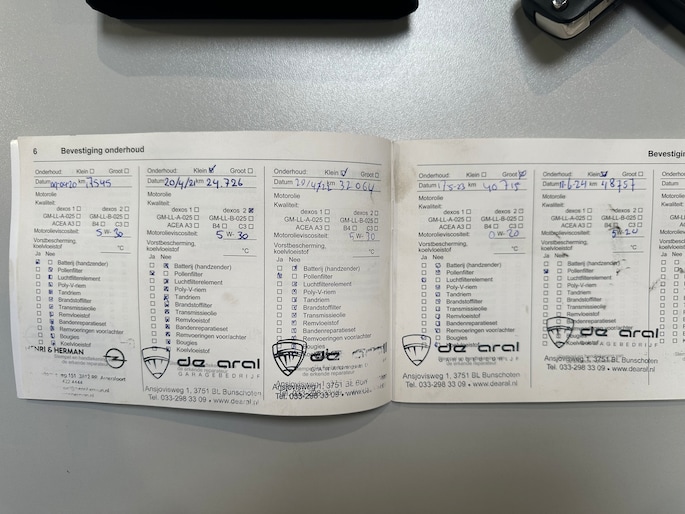 6 Bevestiging onderhoud
Onderhoud: Klein Groot
Datum km 7545
Motorolie
Kwaliteit:
dexos 1 dexos 2
GM-LL-A-025 GM-LL-B-025
ACEA A3 B4 C3
Motorolieviscositeit: 5 W- 30
Vorstbescherming,
koelvloeistof °C
Ja Nee
Batterij (handzender)
Pollenfilter
Luchtfilterelement
Poly-V-riem
Tandriem
Brandstoffilter
Transmissieolie
Remvloeistof
Bandenreparatieset
Remvoeringen voor/achter
Bougies
Koelvloeistof
& HERMAN
Onderhoud: Klein Groot
Datum 20/4/21 km 24.726
Motorolie
Kwaliteit:
dexos 1 dexos 2
GM-LL-A-025 GM-LL-B-025
ACEA A3 B4 C3
Motorolieviscositeit: 5 W- 30
Vorstbescherming,
koelvloeistof °C
Ja Nee
Batterij (handzender)
Pollenfilter
Luchtfilterelement
Poly-V-riem
Tandriem
Brandstoffilter
Transmissieolie
Remvloeistof
Bandenreparatieset
Remvoeringen voor/achter
Bougies
Koelvloeistof
de aral
GARAGEBEDRIJF
Ansjovisweg 1, 3751 BL Bunschoten
Tel. 033-298 33 09 • www.dearal.nl
Onderhoud: Klein Groot
Datum km 32064
Motorolie
Kwaliteit:
dexos 1 dexos 2
GM-LL-A-025 GM-LL-B-025
ACEA A3 B4 C3
Motorolieviscositeit: 5 W- 30
Vorstbescherming,
koelvloeistof °C
Ja Nee
Batterij (handzender)
Pollenfilter
Luchtfilterelement
Poly-V-riem
Tandriem
Brandstoffilter
Transmissieolie
Remvloeistof
Bandenreparatieset
Remvoeringen voor/achter
Bougies
Koelvloeistof
de
Ansjovisweg 1, 3751 BL
Tel. 033-298 33 09 • www.dearal.nl
Onderhoud: Klein Groot
Datum km 40715
Motorolie
Kwaliteit:
dexos 1 dexos 2
GM-LL-A-025 GM-LL-B-025
ACEA A3 B4 C3
Motorolieviscositeit: 0 W- 20
Vorstbescherming,
koelvloeistof °C
Ja Nee
Batterij (handzender)
Pollenfilter
Luchtfilterelement
Poly-V-riem
Tandriem
Brandstoffilter
Transmissieolie
Remvloeistof
Bandenreparatieset
Remvoeringen voor/achter
Bougies
Koelvloeistof
de aral
GARAGEBEDRIJF
Ansjovisweg 1, 3751 BL Bunschoten
Tel. 033-298 33 09 • www.dearal.nl
Onderhoud: Klein Groot
Datum km 48757
Motorolie
Kwaliteit:
dexos 1 dexos 2
GM-LL-A-025 GM-LL-B-025
ACEA A3 B4 C3
W- 20
Vorstbescherming,
koelvloeistof °C
Ja Nee
Batterij (handzender)
Pollenfilter
Luchtfilterelement
Poly-V-riem
Tandriem
Brandstoffilter
Transmissieolie
Remvloeistof
Bandenreparatieset
Remvoeringen voor/achter
Koelvloeistof
de aral
GARAGEBEDRIJF
Ansjovisweg 1, 3751 BL Bunschoten
Tel. 033-298 33 09 • www.dearal.nl